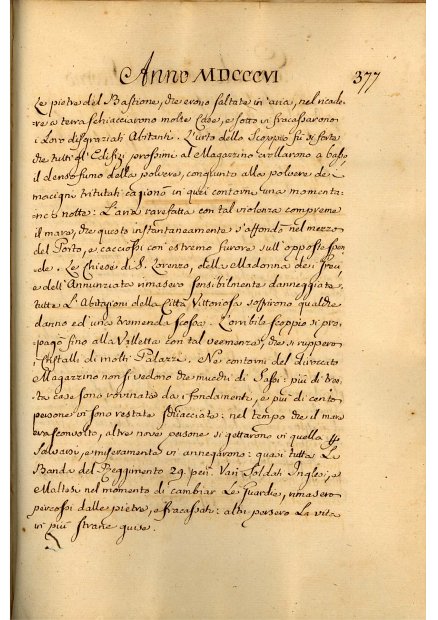 Anno MDCCCVI 377
Le pietre del Bastione, che erono saltate in aria, nel ricade-
re a terra schiacciarono molte Case, e sotto vi fracassarono
i Loro disgraziati Abitanti. L'urto dello Scoppio fù si forte
che tutti gl'Edifizj prossimi al Magazzino crollarono a basso,
il denso fumo della polvere, congiunto alla polvere de
macigni tritutati cagionò in quei contorni una momenta-
nea notte: L'aria rarefatta con tal violenza compreme
il mare, che questo instantaneamente s'affondò nel mezzo
del Porto, e cacciossi con estremo furore sull'opposte spon-
de. Le Chiese di S. Lorenzo, della Madonna de
e dell'Annunziata rimasero sensibilmente danneggiate,
tutte L'Abitazioni della Città Vittoriosa soffrirono qualche
danno ed una tremenda scossa. L'orribile scoppio si pro-
pagò fino alla Valletta con tal veemenza, che si ruppero
i Cristalli di molti Palazzi. Ne contorni del diroccato
Magazzino non si vedono che mucchi di Sassi: più di tren-
ta case sono rovinate da i fondamenti, e più di cento
persone vi sono restate schiacciate: nel tempo che il mare
era sconvolto, altre nove persone si gettarono in quello p
salvarsi, e miseramente in annegarono: quasi tutta La
Banda del Reggimento 29. Varj Soldati Inglesi, e
Maltesi nel momento di cambiar Le Guardie, rimasero
percossi dalle pietre, e fracassati: altri persero La vita
in più strane guise.